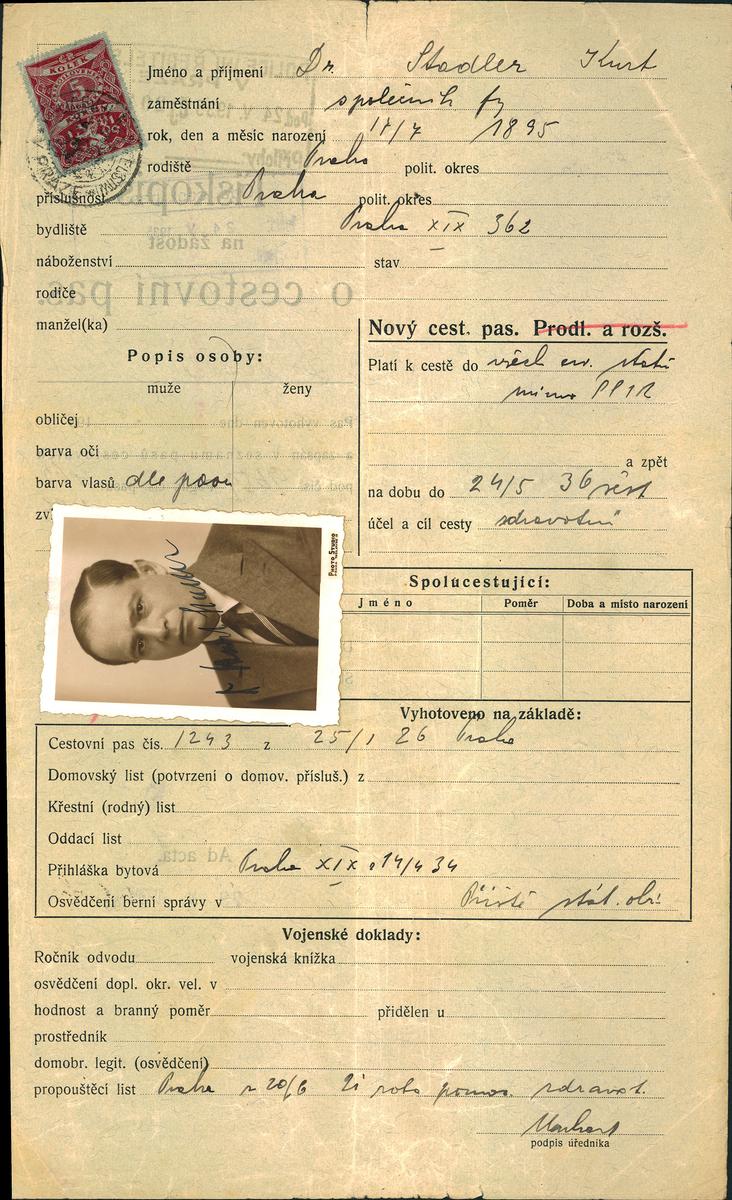 KOLEK
5
V PRAZE
Jméno a příjmení Dr. Stadler Kurt
zaměstnání společník fy
rok, den a měsíc narození 17/7 1895
rodiště Praha polit. okres
příslušnost Praha polit. okres
bydliště Praha XIX 362
náboženství stav
rodiče
manžel(ka)
Nový cest. pas. Prodl. a rozš.
Popis osoby:
muže ženy
obličej
barva očí
barva vlasů dle pasu
Platí k cestě do všech ev. států
mimo
a zpět
na dobu do 24/5 36
účel a cíl cesty zdravotní
PHOTO STUDIO
Spolucestující:
Jméno Poměr Doba a místo narození
Vyhotoveno na základě:
Cestovní pas čís. 1243 z 25/1 26 Praha
Domovský list (potvrzení o domov. přísluš.) z
Křestní (rodný) list
Oddací list
Přihláška bytová Praha XIX 14/4 34
Osvědčení berní správy v Příště stát. obč.
Vojenské doklady:
Ročník odvodu vojenská knížka
osvědčení dopl. okr. vel. v
hodnost a branný poměr přidělen u
prostředník
domobr. legit. (osvědčení)
propouštěcí list Praha 20/6 21 zdravot.
podpis úředníka